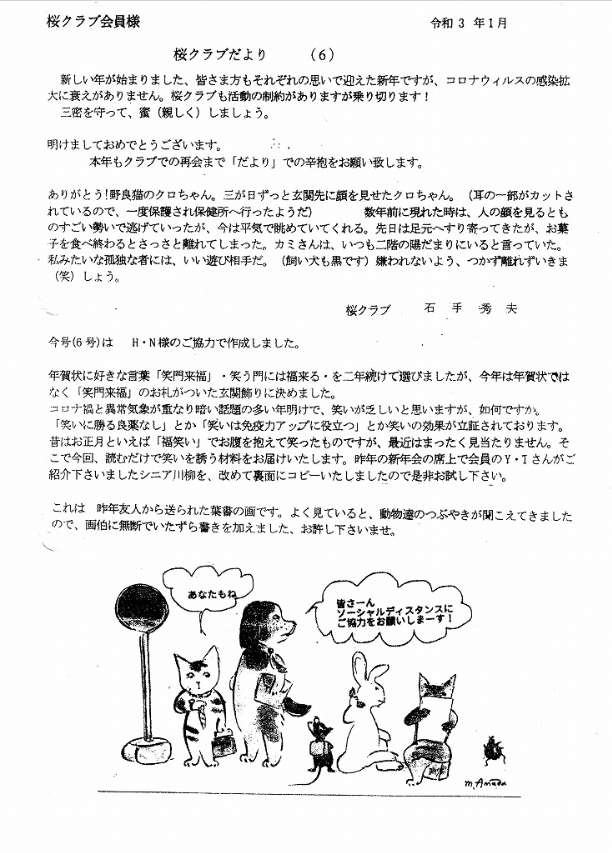 桜クラブ会員様
令和３ 年１月
桜クラブだより （６）
新しい年が始まりました、皆さま方もそれぞれの思いで迎えた新年ですが、コロナウィルスの感染拡
大に衰えがありません。桜クラブも活動の制約がありますが乗り切ります！
三密を守って、蜜（親しく）しましょう。
明けましておめでとうございます。
本年もクラブでの再会まで「だより」での辛抱をお願い致します。
ありがとう！野良猫のクロちゃん。三が日ずっと玄関先に顔を見せたクロちゃん。（耳の一部がカットさ
れているので、一度保護され保健所へ行ったようだ） 数年前に現れた時は、人の顔を見るとも
のすごい勢いで逃げていったが、今は平気で眺めていてくれる。先日は足元へすり寄ってきたが、お菓
子を食べ終わるとさっさと離れてしまった。カミさんは、いつも二階の陽だまりにいると言っていた。
私みたいな孤独な者には、いい遊び相手だ。（飼い犬も黒です）嫌われないよう、つかず離れずいきま
（笑）しょう。
桜クラブ 石 手 秀 夫
今号(６号)は Ｈ・Ｎ様のご協力で作成しました。
年賀状に好きな言葉「笑門来福」・笑う門には福来る・を二年続けて選びましたが、今年は年賀状では
なく「笑門来福」のお札がついた玄関飾りに決めました。
コロナ禍と異常気象が重なり暗い話題の多い年明けで、笑いが乏しいと思いますが、如何ですか。
「笑いに勝る良薬なし」とか「笑いは免疫力アップに役立つ」とか笑いの効果が立証されております。
昔はお正月といえば「福笑い」でお腹を抱えて笑ったものですが、最近はまったく見当たりません。そ
こで今回、読むだけで笑いを誘う材料をお届けいたします。昨年の新年会の席上で会員のＹ・Ｔさんがご
紹介下さいましたシニア川柳を、改めて裏面にコピーいたしましたので是非お試し下さい。
これは 昨年友人から送られた葉書の画です。よく見ていると、動物達のつぶやきが聞こえてきました
ので、画伯に無断でいたずら書きを加えました、お許し下さいませ。
あなたもね
皆さーん
ソーシャルディスタンスに
ご協力をお願いしまーす！